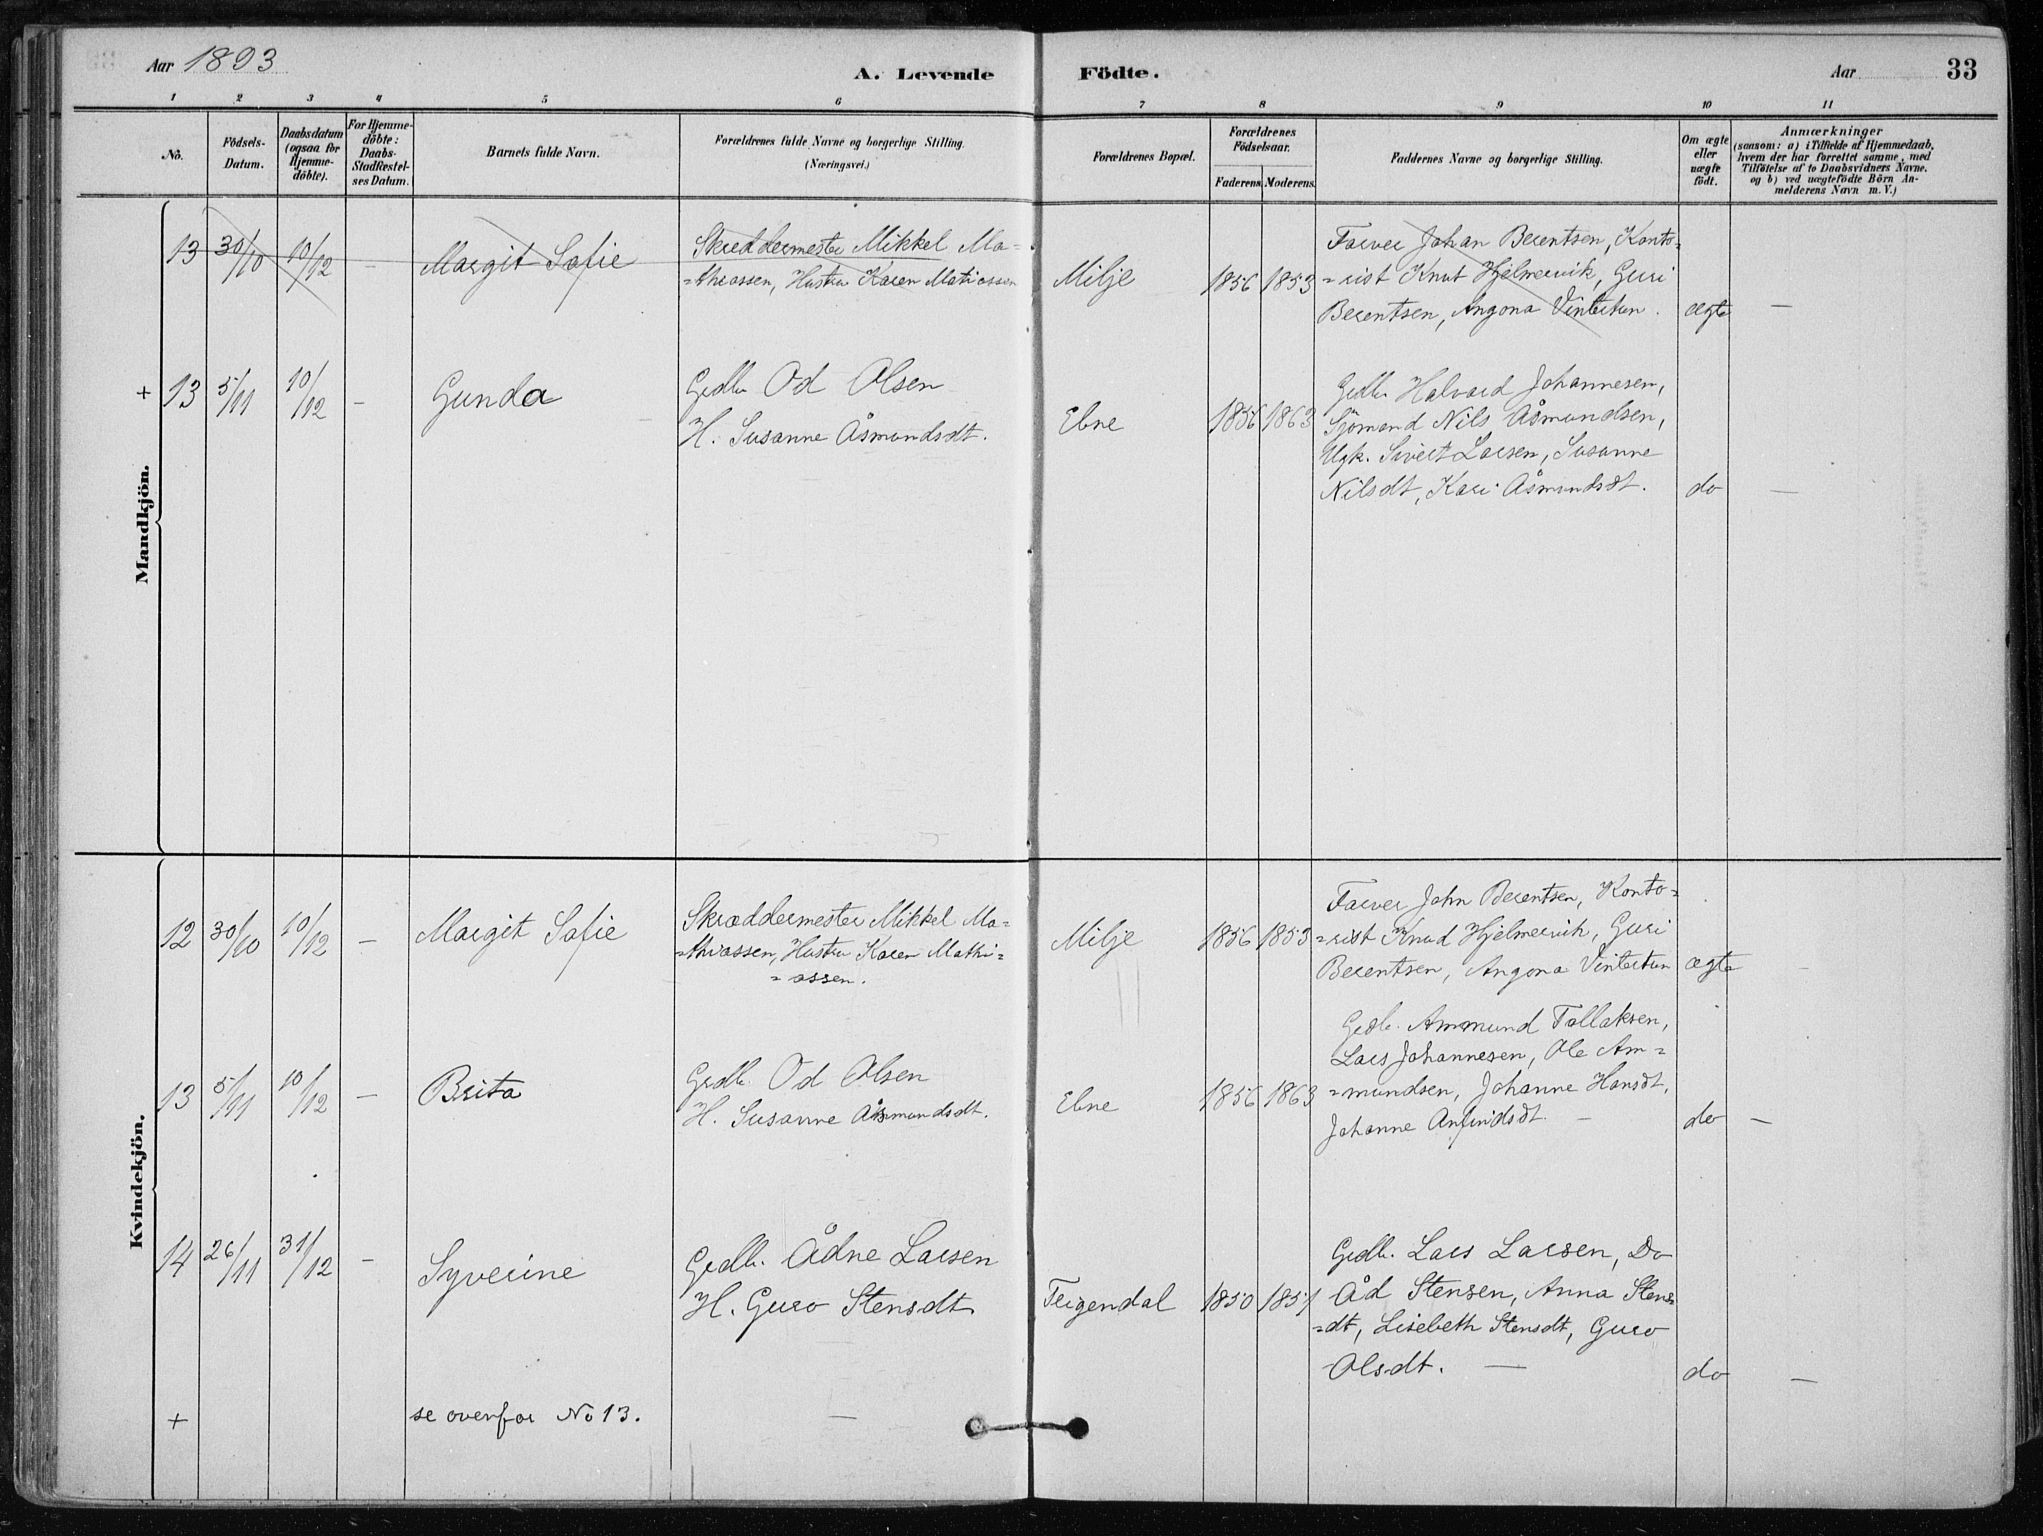 Aar 1893
A. Levende Födte.
Aar 33
1 2 3 4 5 6 7 8 9 10 11
No.
Födsels-
Datum.
Daabsdatum
(ogsaa for
Hjemme-
döbte).
For Hjemme-
döbte:
Daabs-
Stadfæstel-
ses Datum.
Barnets fulde Navn.
Forældrenes fulde Navne og borgerlige Stilling.
(Næringsvei.)
Forældrenes Bopæl.
Forældrenes
Födselsaar.
Faderens. Moderens.
Faddernes Navne og borgerlige Stilling.
Om ægte
eller
uægte
födt.
Anmærkninger
(saasom: a) i Tilfælde af Hjemmedaab,
hvem der har forrettet samme, med
Tilföielse af to Daabsvidners Navne,
og b) ved uægtefödte Börn An-
melderens Navn m. V.)
Mandkjön.
13 30/10 10/12 - Margit Sofie
Skræddermester Mikkel Ma=
=thiassen, Hustru Karen Matiassen
Milje 1856 1853
Farver Johan Berentsen, Konto=
=rist Knut Hjelmervik, Guri
Berentsen, Angona Vintertun.
ægte —
+ 13 5/11 10/12 - Gunda
Grdbr. Od Olsen
H. Susanne Åsmundsdt.
Ebne 1856 1863
Grdbr. Halvard Johannesen,
Sjömand Nils Åsmundsen,
Ugk. Sivert Larsen, Susanne
Nilsdt, Kari Åsmundsdt.
do —
Kvindekjön.
12 30/10 10/12 - Margit Sofie
Skræddermester Mikkel Ma=
=thiassen, Hustru Karen Mathi=
=assen.
Milje 1856 1853
Farver John Berentsen, Konto=
=rist Knud Hjelmervik, Guri
Berentsen, Angona Vintertun
ægte -
13 5/11 10/12 - Brita
Grdbr. Od Olsen
H. Susanne Åsmundsdt.
Ebne 1856 1863
Grdbr. Ammund Tollaksen,
Lars Johannesen, Ole Am=
=mundsen, Johanne Hansdt,
Johanne Anfindsdt. —
do —
14 26/11 31/12 - Syverine
Grdbr. Ådne Larsen
H. Guro Stensdt
Teigendal 1850 1851
Grdbr. Lars Larsen, Do
Åd Stensen, Anna Stens=
=dt, Lisebeth Stensdt, Guro
Olsdt. —
do —
+ se ovenfor No 13. —